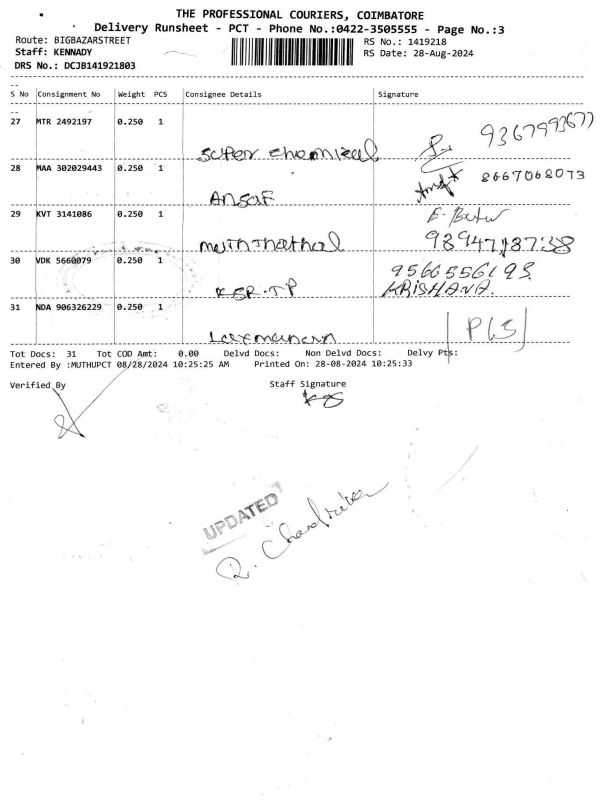 THE PROFESSIONAL COURIERS, COIMBATORE
Delivery Runsheet - PCT - Phone No.:0422-3505555 - Page No.:3
Route: BIGBAZARSTREET RS No.: 1419218
Staff: KENNADY RS Date: 28-Aug-2024
DRS No.: DCJB141921803
S No Consignment No Weight PCS Consignee Details Signature
27 MTR 2492197 0.250 1
super chemical
28 MAA 302029443 0.250 1 8667068073
Ansar
29 KVT 3141086 0.250 1
30 VDK 5660079 0.250 1 9566556193
KSR-TP KRISHANA.
31 NDA 906326229 0.250 1
Tot Docs: 31 Tot COD Amt: 0.00 Delvd Docs: Non Delvd Docs: Delvy Pts:
Entered By :MUTHUPCT 08/28/2024 10:25:25 AM Printed On: 28-08-2024 10:25:33
Verified By Staff Signature
UPDATED
R. Chandrika